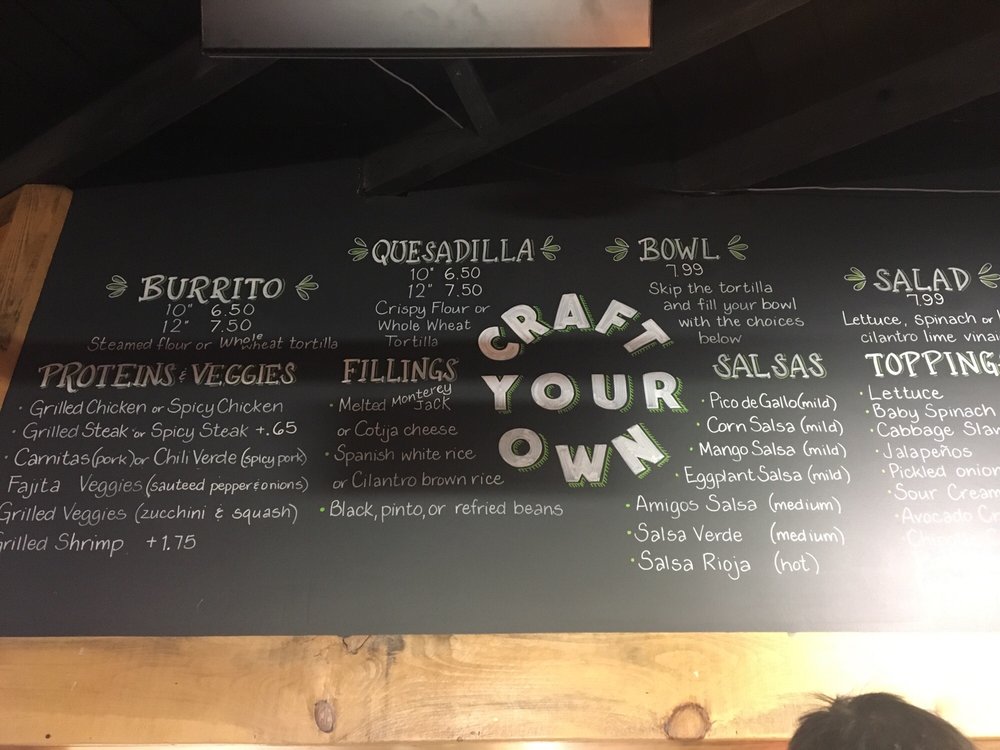 BURRITO
10" 6.50
12" 7.50
Steamed flour or Whole wheat tortilla
QUESADILLA
10" 6.50
12" 7.50
Crispy Flour or
Whole Wheat
Tortilla
BOWL
7.99
Skip the tortilla
and fill your bowl
with the choices
below
SALAD
7.99
Lettuce, Spinach or
cilantro lime
CRAFT
YOUR
OWN
PROTEINS & VEGGIES
• Grilled Chicken or Spicy Chicken
• Grilled Steak or Spicy Steak +.65
• Carnitas (pork) or Chili Verde (spicy pork)
Fajita Veggies (sauteed pepper & onions)
Grilled Veggies (zucchini & squash)
Grilled Shrimp +1.75
FILLINGS
• Melted Monterey Jack
or Cotija cheese
• Spanish white rice
or Cilantro brown rice
• Black, pinto, or refried beans
SALSAS
• Pico de Gallo (mild)
• Corn Salsa (mild)
• Mango Salsa (mild)
• Eggplant Salsa (mild)
• Amigos Salsa (medium)
• Salsa Verde (medium)
• Salsa Rioja (hot)
TOPPING
• Lettuce
• Baby Spinach
• Cabbage Slaw
• Jalapeños
• Pickled onion
• Sour Cream
• Avocado